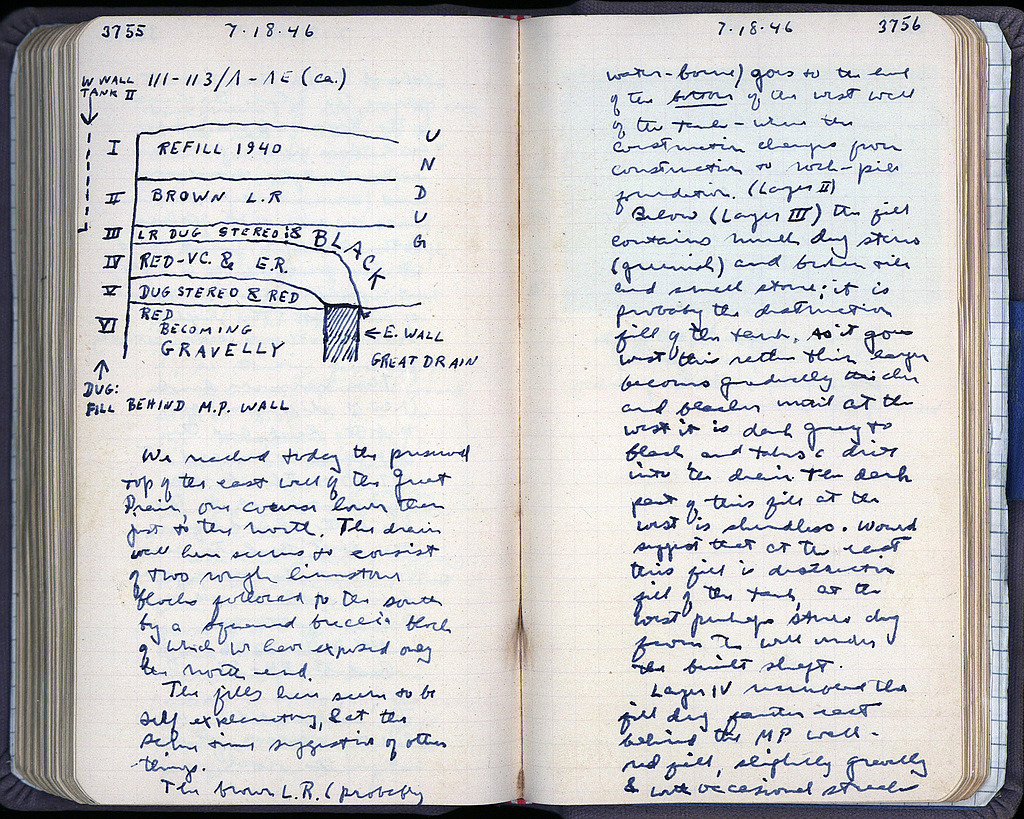 3755 7·18·46
W WALL
TANK II
111-113/Λ-ΛE (ca.)
I REFILL 1940
II BROWN L.R
III LR DUG STEREO & BLACK
IV RED-V.C. & E.R.
V DUG STEREO & RED
VI RED
BECOMING
GRAVELLY
UNDUG
← E. WALL
GREAT DRAIN
DUG:
FILL BEHIND M.P. WALL
We reached today the preserved
top of the east wall of the Great
Drain, one course lower than
just to the north. The drain
wall here seems to consist
of two rough limestone
blocks followed to the south
by a squared breccia block
of which we have exposed only
the north end.
The fills here seem to be
self explanatory, & at the
same time suggestive of other
things.
The brown L.R. (probably
7·18·46 3756
water-borne) goes to the end
of the bottom of the west wall
of the tank - where the
construction changes from
construction to rock-pile
foundation. (Layer II)
Below (Layer III) the fill
contains much dug stereo
(greenish) and broken tile
and small stone; it is
probably the destruction
fill of the tank. As it goes
west this rather thin layer
becomes gradually thicker
and blacker until at the
west it is dark grey to
black, and takes a dive
into the drain. The dark
part of this fill at the
west is sherdless. Would
suggest that at the east
this fill is destruction
fill of the tank, at the
west perhaps stereo dug
from the well under
the built shaft.
Layer IV resembled the
fill dug farther east
behind the MP wall -
red fill, slightly gravelly
& with occasional streaks